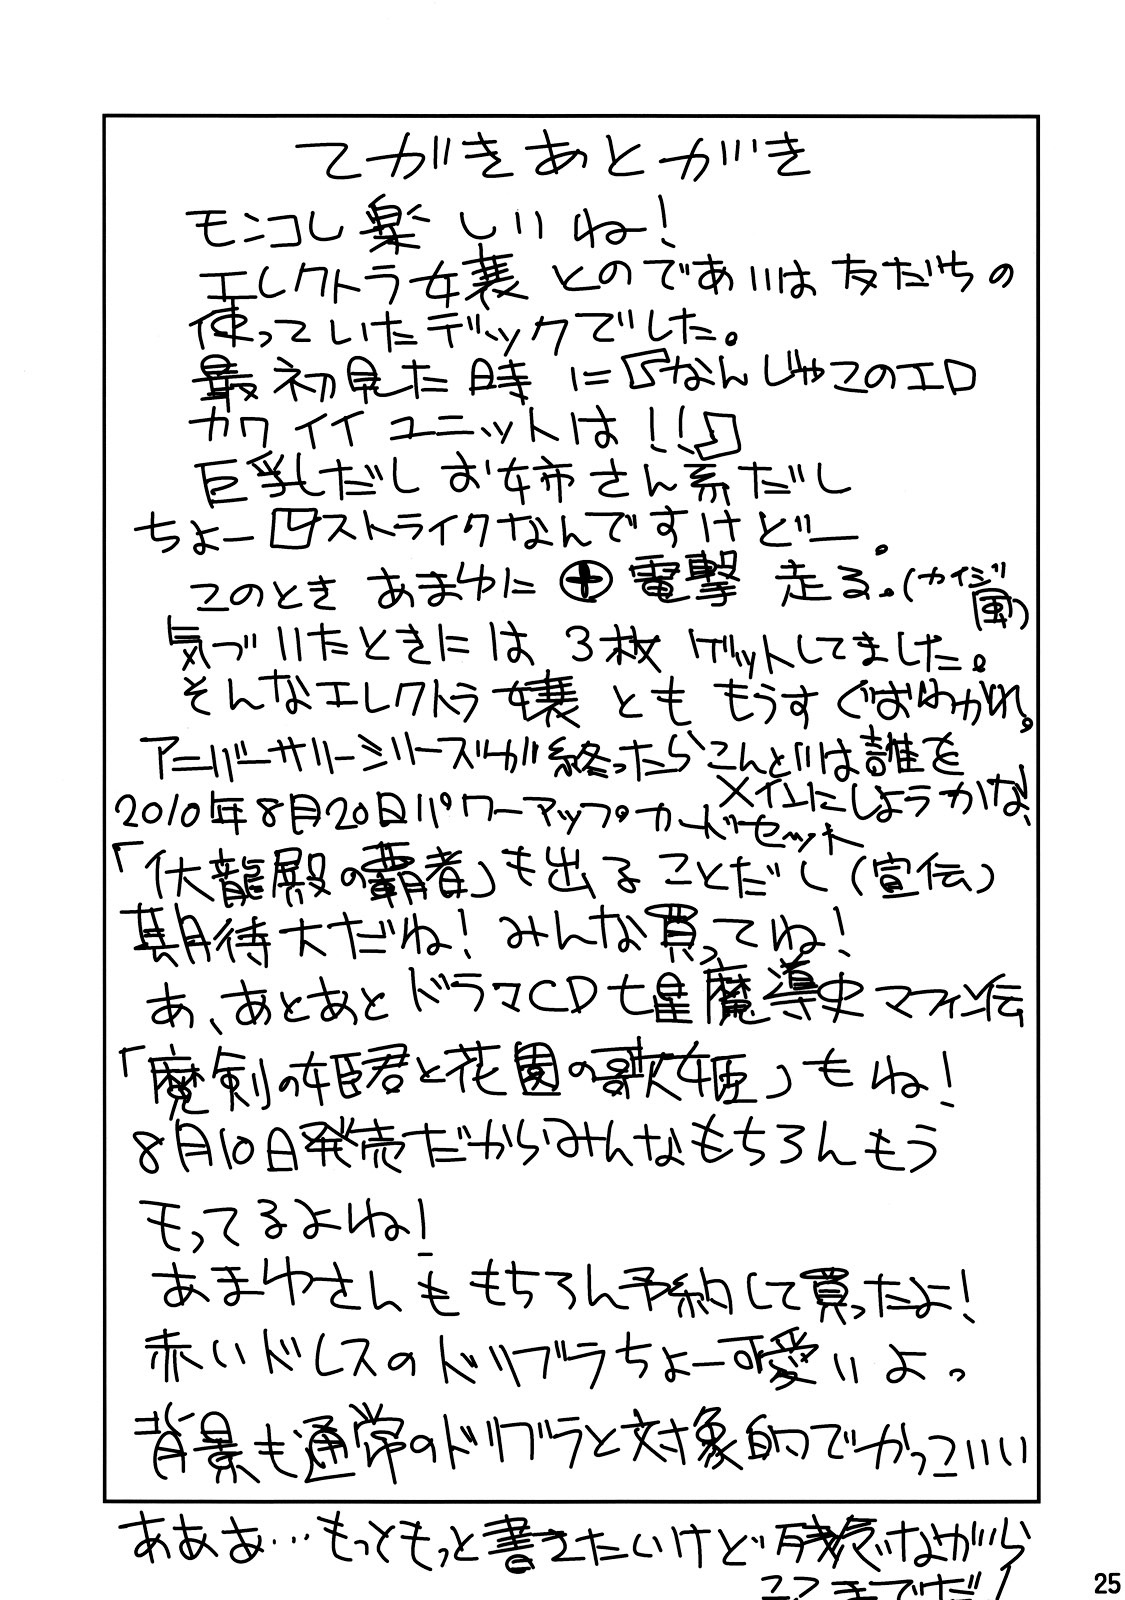 てがきあとがき
モンコレ楽しいね！
エレクトラ嬢とのであいは友だちの
使っていたデックでした。
最初見た時に『なんじゃこのエロ
カワイイユニットは！！』
巨乳だしお姉さん系だし
ちょーどストライクなんですけどー。
このときあまゆに⊕電撃走る。(カイジ風)
気づいたときには3枚ゲットしてました。
そんなエレクトラ嬢とももうすぐおわかれ。
アニバーサリーシリーズが終ったらこんどは誰を
メインにしようかな！
2010年8月20日パワーアップカードセット
「伏龍殿の覇者」も出ることだし(宣伝)
期待大だね！みんな買ってね！
あ、あとあとドラマCD七星魔導史マフィン伝
「魔剣の姫君と花園の歌姫」もね！
8月10日発売だからみんなもちろんもう
もってるよね！
あまゆさんももちろん予約して買ったよ！
赤いドレスのドリブラちょー可愛いよっ
背景も通常のドリブラと対象的でかっこいい
あああ…もっともっと書きたいけど残念ながら
ここまでだ！
25